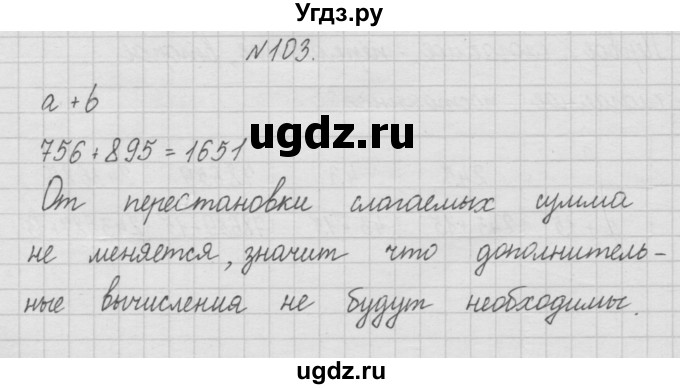 Угдз.ру
№103.
a + b
756 + 895 = 1651
ugdz.ru
От перестановки слагаемых сумма
не меняется, значит что дополнитель-
ные вычисления не будут необходимы.
ugdz.ru